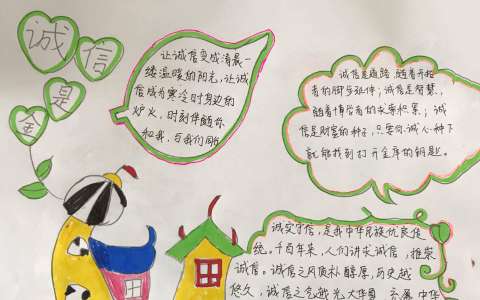 诚信
是
金
让诚信变成清晨一
缕温暖的阳光,让诚
信成为寒冷时身边的
炉火,时刻伴随你
和我,与我们同行
诚信是道路,随着开拓
者的脚步延伸;诚信是智慧,
随着博学者的求索积累;诚
信是财富的种子,只要你诚心种下
就能找到打开金库的钥匙。
诚实守信,是我中华民族优良传
统。千百年来,人们讲求诚信,推崇
诚信。诚信之风质朴醇厚,历史越
悠久,诚信之气越光大华夏,充盈中华